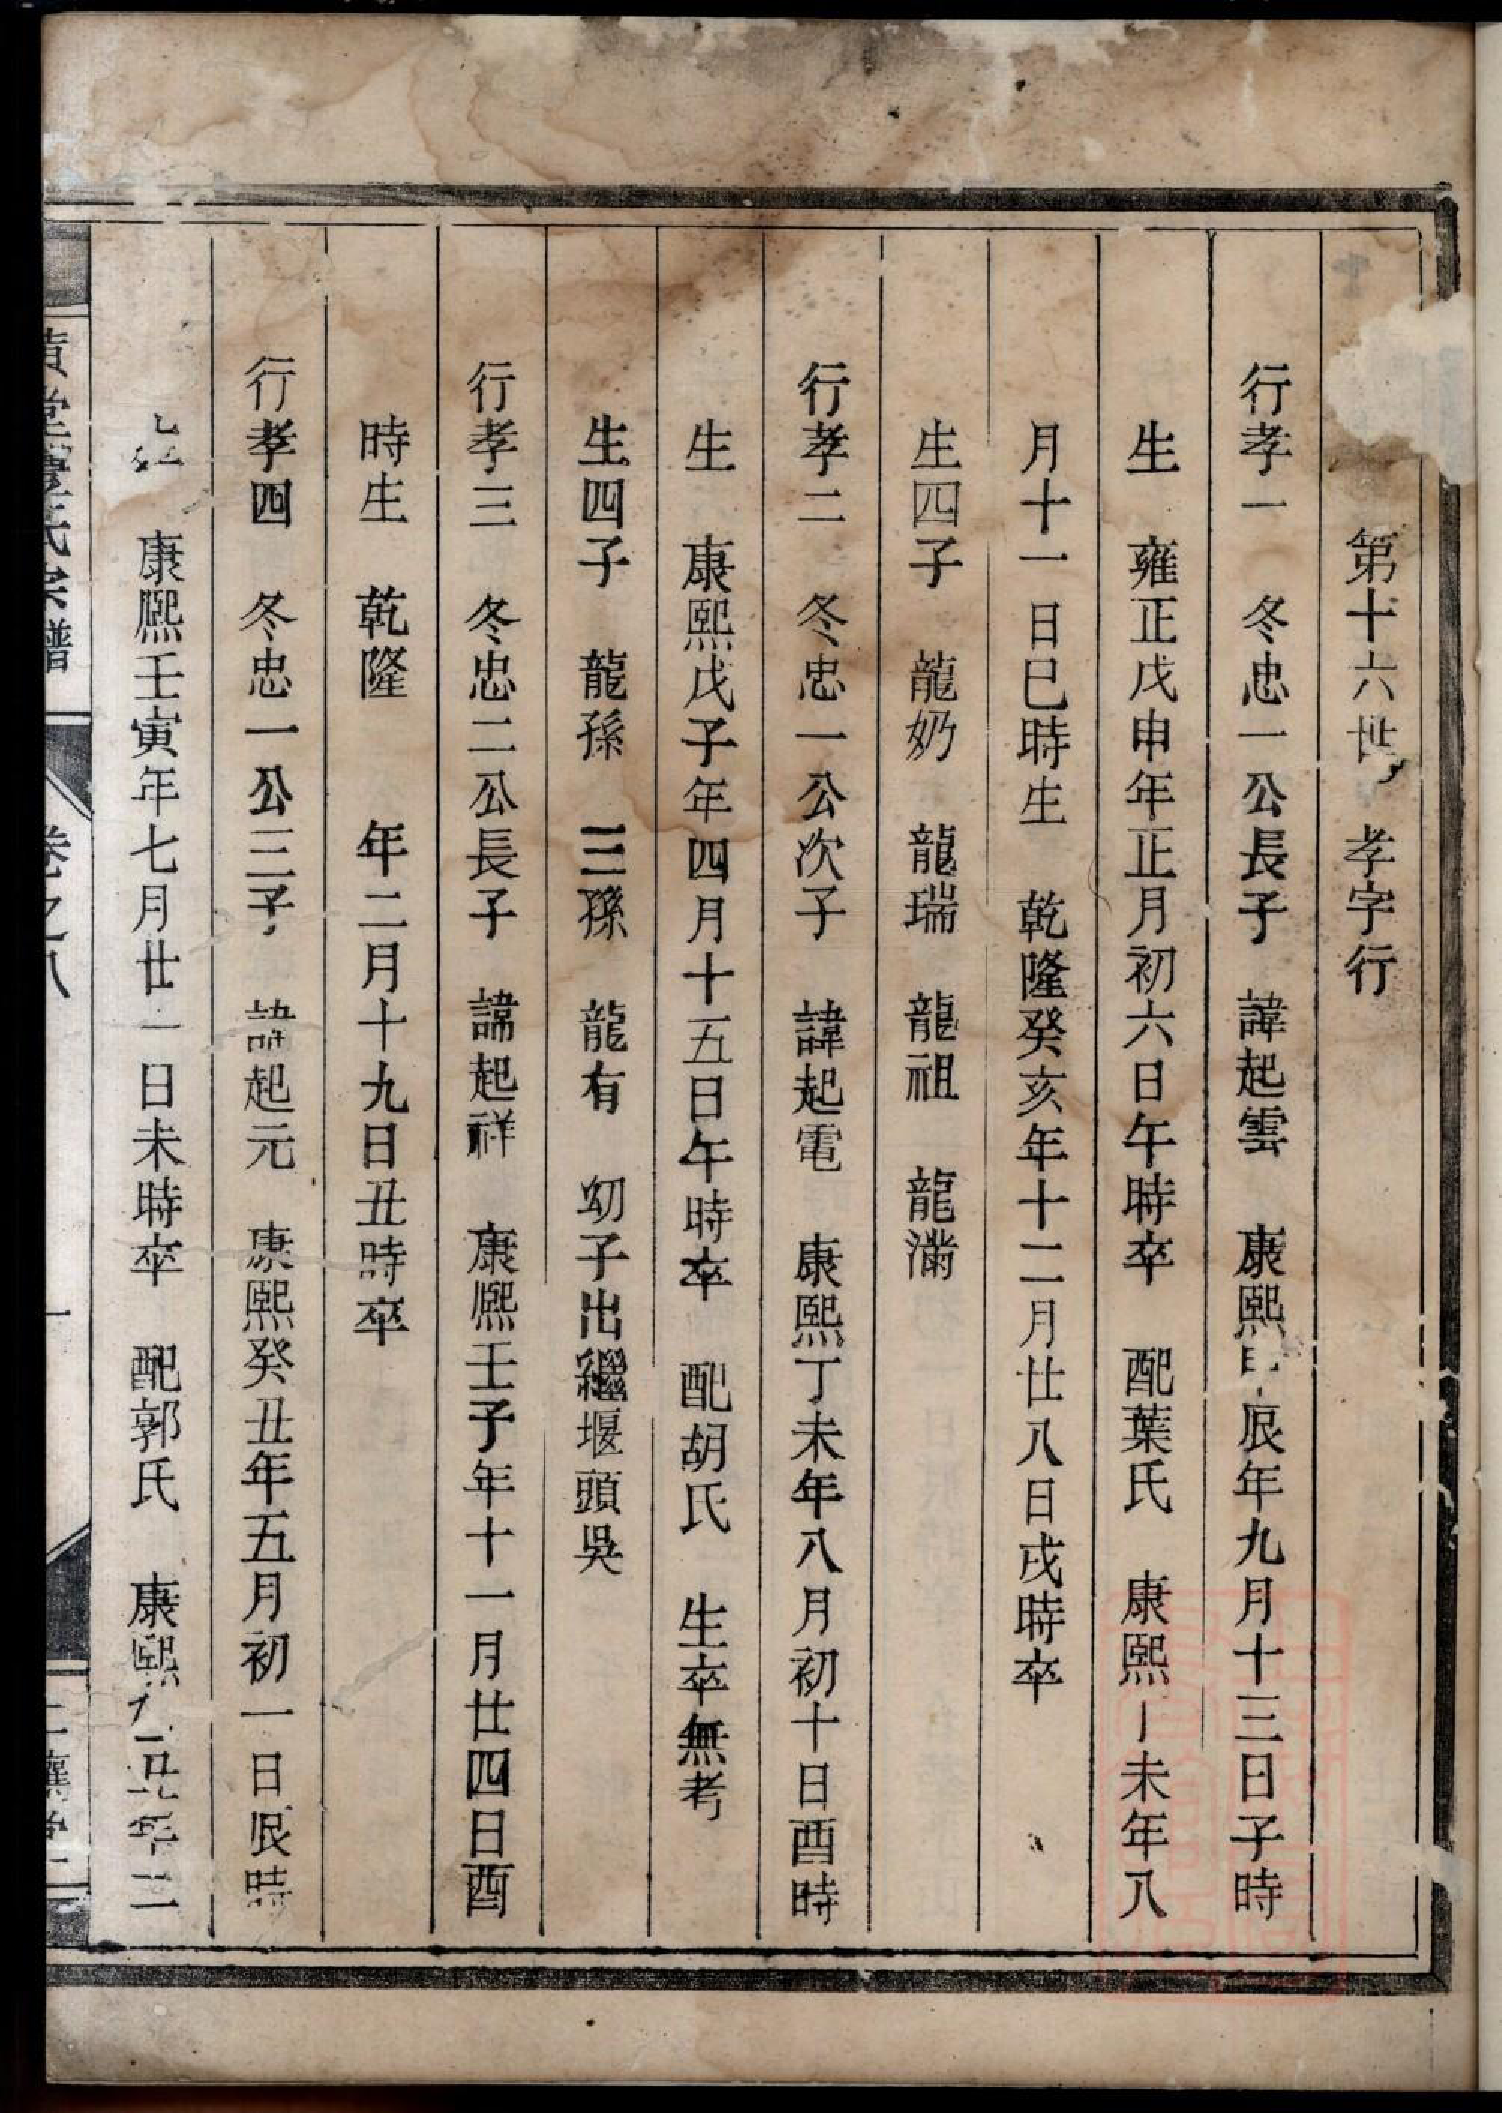 第十六世 孝字行
行孝一 冬忠一公長子 諱起雲 康熙甲辰年九月十三日子時
生 雍正戊申年正月初六日午時卒 配葉氏 康熙丁未年八
月十一日巳時生 乾隆癸亥年十二月廿八日戌時卒
生四子 龍奶 龍瑞 龍祖 龍滿
行孝二 冬忠一公次子 諱起電 康熙丁未年八月初十日酉時
生 康熙戊子年四月十五日午時卒 配胡氏 生卒無考
生四子 龍孫 三孫 龍有 幼子出繼堰頭吳
行孝三 冬忠二公長子 諱起祥 康熙壬子年十一月廿四日酉
時生 乾隆 年二月十九日丑時卒
行孝四 冬忠一公三子 諱起元 康熙癸丑年五月初一日辰時
生 康熙壬寅年七月廿一日未時卒 配郭氏 康熙 丑年二
氏宗譜 卷之八 一